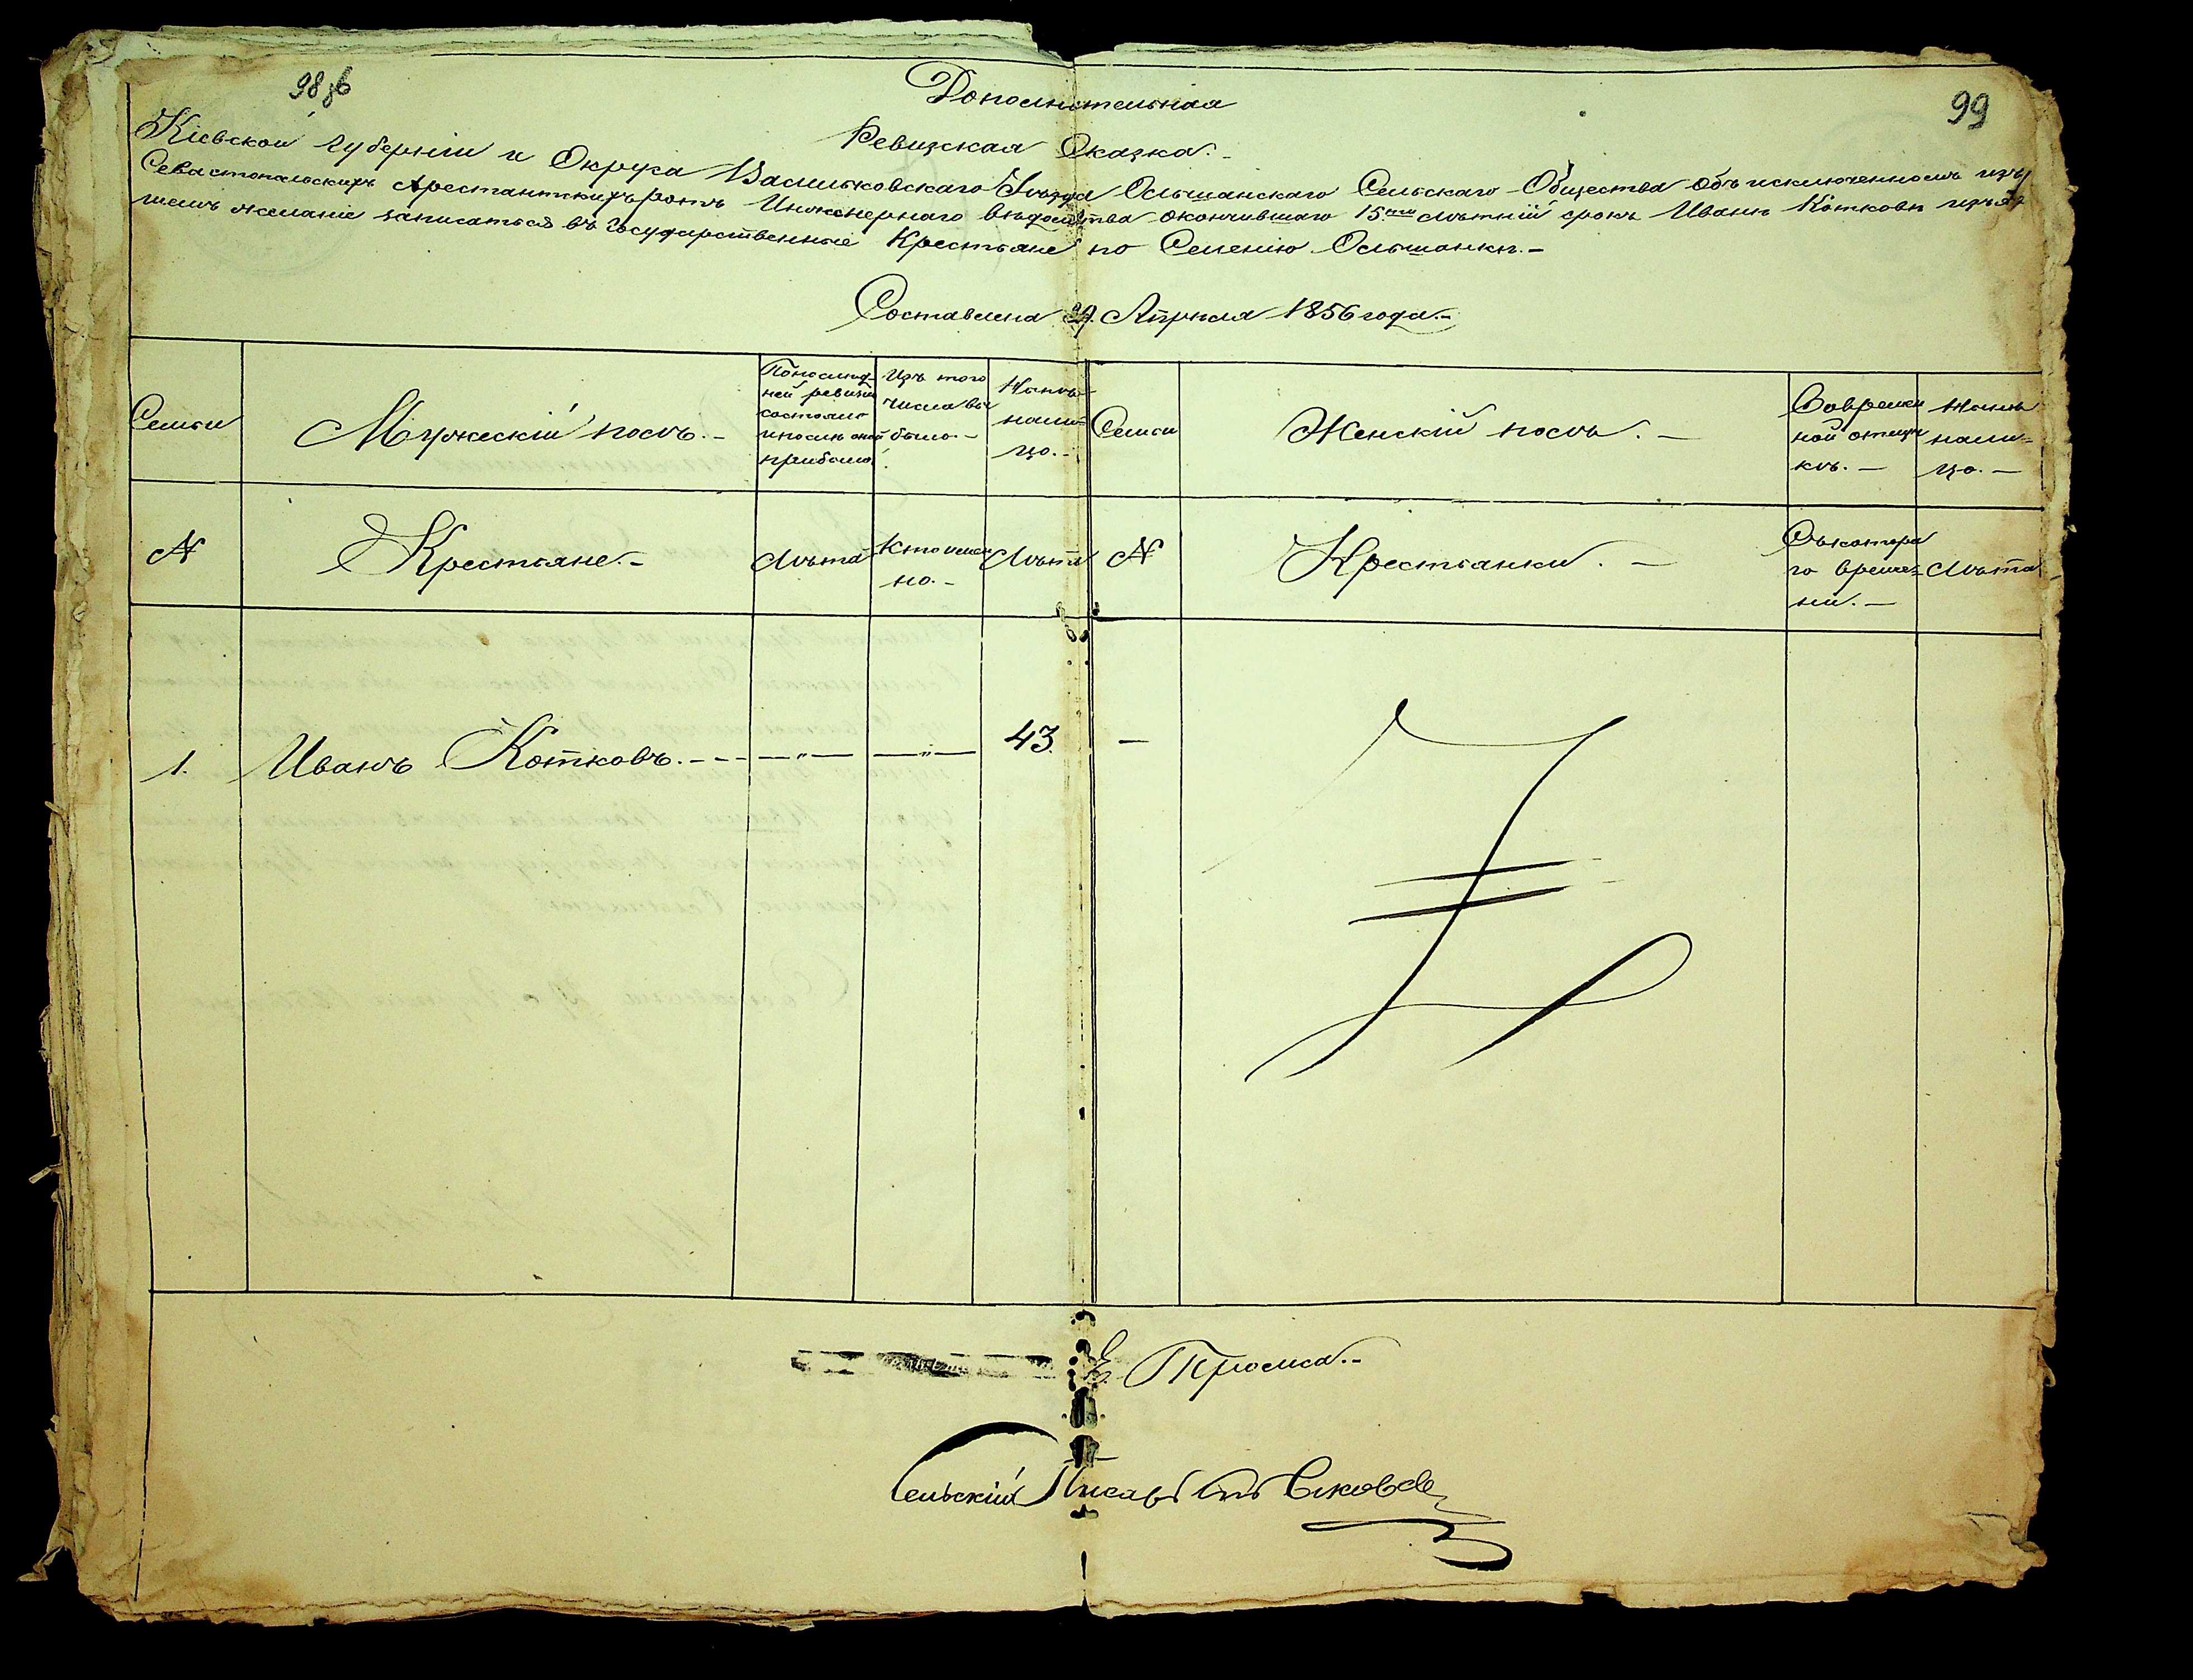 98 об
99
Дополнительная
Ревизская Сказка.-
Кіевской Губерніи и Округа Васильковскаго Уѣзда Ольшанскаго Сельскаго Общества объ исключенномъ изъ
Севастопольскихъ Арестантскихъ ротъ Инженернаго вѣдомства окончившаго 15ти лѣтній срокъ Иванѣ Котковѣ изъяв
шемъ желаніе записаться въ Государственные Крестьяне по Селенію Ольшанкѣ.-
Составлена Апрѣля 1856 года.-
Семьи
Мужескій полъ.-
По послѣд-
ней ревизіи
состояло
и послѣ оной
прибыло
Изъ того
числа вы
было.-
Нынѣ
нали=
цо.-
Семьи
Женскій полъ.-
Во времен
ной отлуч
кѣ.-
Нынѣ
нали=
цо.-
N
Крестьяне.-
Лѣта
Когда имен
но.-
Лѣта
N
Крестьянки.-
Съ котора
го време=
ни.-
Лѣта
1. Иванъ Котковъ.--- —„— —„— 43. —
Сельскій Писарь